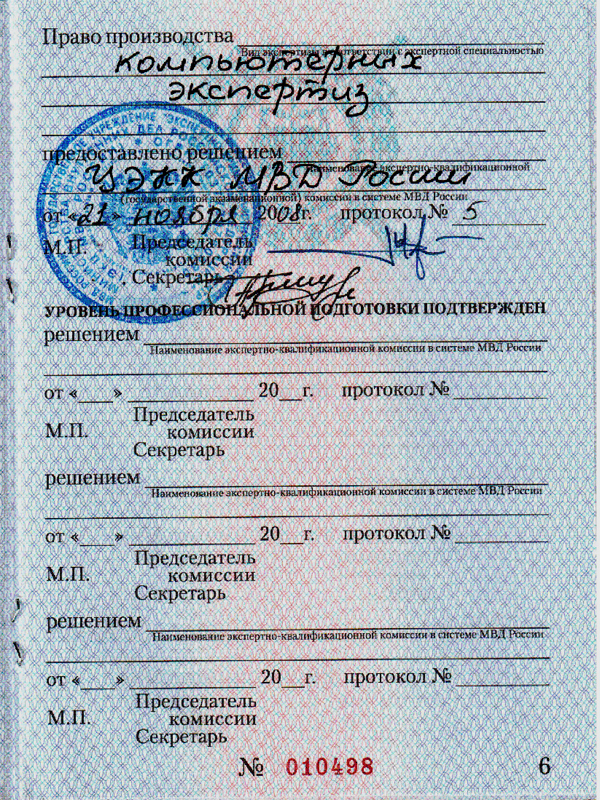 Право производства
Вид экспертизы в соответствии с экспертной специальностью
компьютерных
экспертиз
предоставлено решением
Наименование экспертно-квалификационной
ЦЭКК МВД России
(государственной экзаменационной) комиссии в системе МВД России
от «21» ноября 2008г. протокол № 5
М.П. Председатель
комиссии
Секретарь
УРОВЕНЬ ПРОФЕССИОНАЛЬНОЙ ПОДГОТОВКИ ПОДТВЕРЖДЕН
решением
Наименование экспертно-квалификационной комиссии в системе МВД России
от «___» ____________ 20__г. протокол № _________
Председатель
М.П. комиссии
Секретарь
решением
Наименование экспертно-квалификационной комиссии в системе МВД России
от «___» ____________ 20__г. протокол № _________
Председатель
М.П. комиссии
Секретарь
решением
Наименование экспертно-квалификационной комиссии в системе МВД России
от «___» ____________ 20__г. протокол № _________
Председатель
М.П. комиссии
Секретарь
№ 010498 6